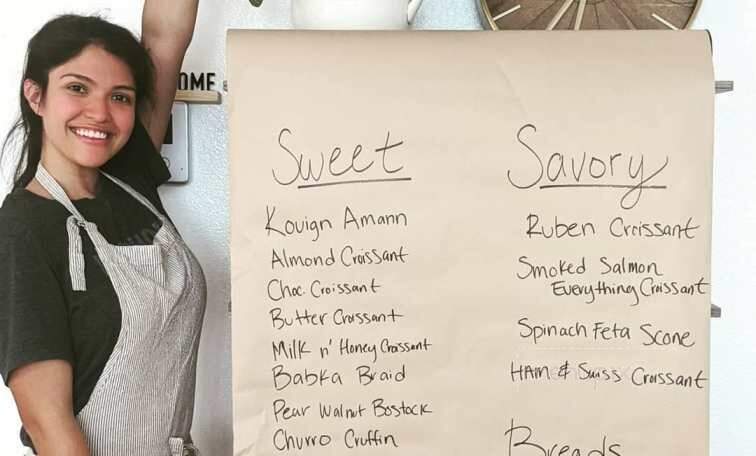 OME
Sweet
Kouign Amann
Almond Croissant
Choc. Croissant
Butter Croissant
Milk n' Honey Croissant
Babka Braid
Pear Walnut Bostock
Churro Cruffin
Savory
Ruben Croissant
Smoked Salmon
Everything Croissant
Spinach Feta Scone
HAM & Swiss Croissant
Breads